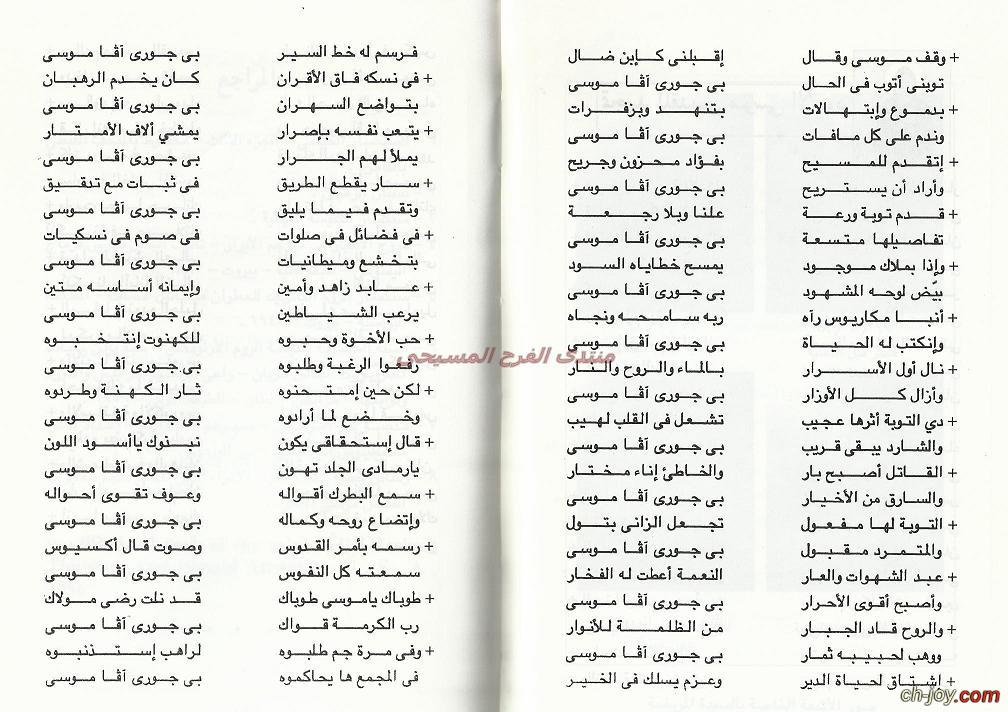 + وقف موسى وقال إقبلنى كإبن ضال
توبنى أتوب فى الحال بى جورى آڤا موسى
+ بدموع وإبتهالات بتنهد وبزفرات
وندم على كل مافات بى جورى آڤا موسى
+ إتقدم للمسيح بفؤاد محزون وجريح
وأراد أن يستريح بى جورى آڤا موسى
+ قدم توبة ورعة علنا وبلا رجعة
تفاصيلها متسعة بى جورى آڤا موسى
+ وإذا بملاك موجود يمسح خطاياه السود
بيّض لوحه المشهود بى جورى آڤا موسى
+ أنبا مكاريوس رآه ربه سامحه ونجاه
وإنكتب له الحياة بى جورى آڤا موسى
+ نال أول الأسرار بالماء والروح والنار
وأزال كل الأوزار بى جورى آڤا موسى
+ دي التوبة أثرها عجيب تشعل فى القلب لهيب
والشارد يبقى قريب بى جورى آڤا موسى
+ القاتل أصبح بار والخاطئ إناء مختار
والسارق من الأخيار بى جورى آڤا موسى
+ التوبة لها مفعول تجعل الزانى بتول
والمتمرد مقبول بى جورى آڤا موسى
+ عبد الشهوات والعار النعمة أعطت له الفخار
وأصبح أقوى الأحرار بى جورى آڤا موسى
+ والروح قاد الجبار من الظلمة للأنوار
ووهب لحبيبه ثمار بى جورى آڤا موسى
+ إشتاق لحياة الدير وعزم يسلك فى الخير
فرسم له خط السير بى جورى آڤا موسى
+ فى نسكه فاق الأقران كان يخدم الرهبان
بتواضع السهران بى جورى آڤا موسى
+ يتعب نفسه بإصرار يمشي ألاف الأمتار
يملأ لهم الجرار بى جورى آڤا موسى
+ سار يقطع الطريق فى ثبات مع تدقيق
وتقدم فيما يليق بى جورى آڤا موسى
+ فى فضائل فى صلوات فى صوم فى نسكيات
بتخشع وميطانيات بى جورى آڤا موسى
+ عابد زاهد وأمين وإيمانه أساسه متين
يرعب الشياطين بى جورى آڤا موسى
+ حب الأخوة وحبوه للكهنوت إنتخبوه
رفعوا الرغبة وطلبوه بى جورى آڤا موسى
+ لكن حين إمتحنوه ثار الكهنة وطردوه
وخضع لما أرادوه بى جورى آڤا موسى
+ قال إستحقاقى يكون نبنوك ياأسود اللون
يارمادى الجلد تهون بى جورى آڤا موسى
+ سمع البطرك أقواله وعوف تقوى أحواله
وإتضاع روحه وكماله بى جورى آڤا موسى
+ رسمه بأمر القدوس وصوت قال أكسيوس
سمعته كل النفوس بى جورى آڤا موسى
+ طوباك ياموسى طوباك قد نلت رضى مولاك
رب الكرمة قواك بى جورى آڤا موسى
+ وفى مرة جم طلبوه لراهب إستذنبوه
فى المجمع ها يحاكموه بى جورى آڤا موسى
منتدى الفرح المسيحى
ch-joy.com